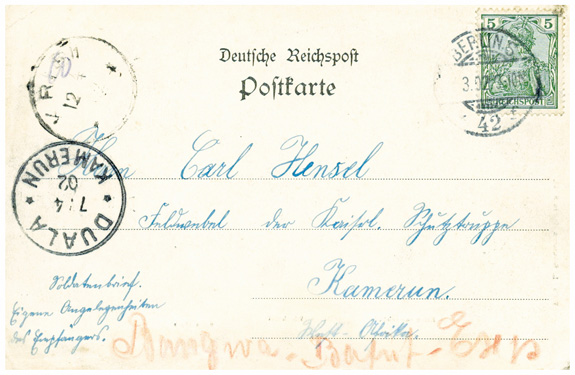 Deutsche Reichspost
Postkarte
5 5
REICHSPOST
BERLIN.S.
42
DUALA
KAMERUN
7/4
02
12
Herrn Carl Hensel
Feldwebel der Kaiserl. Schutztruppe
Kamerun.
West-Afrika.
Soldatenbrief.
Eigene Angelegenheiten
des Empfängers.
Bangwa-Bafut-Exp